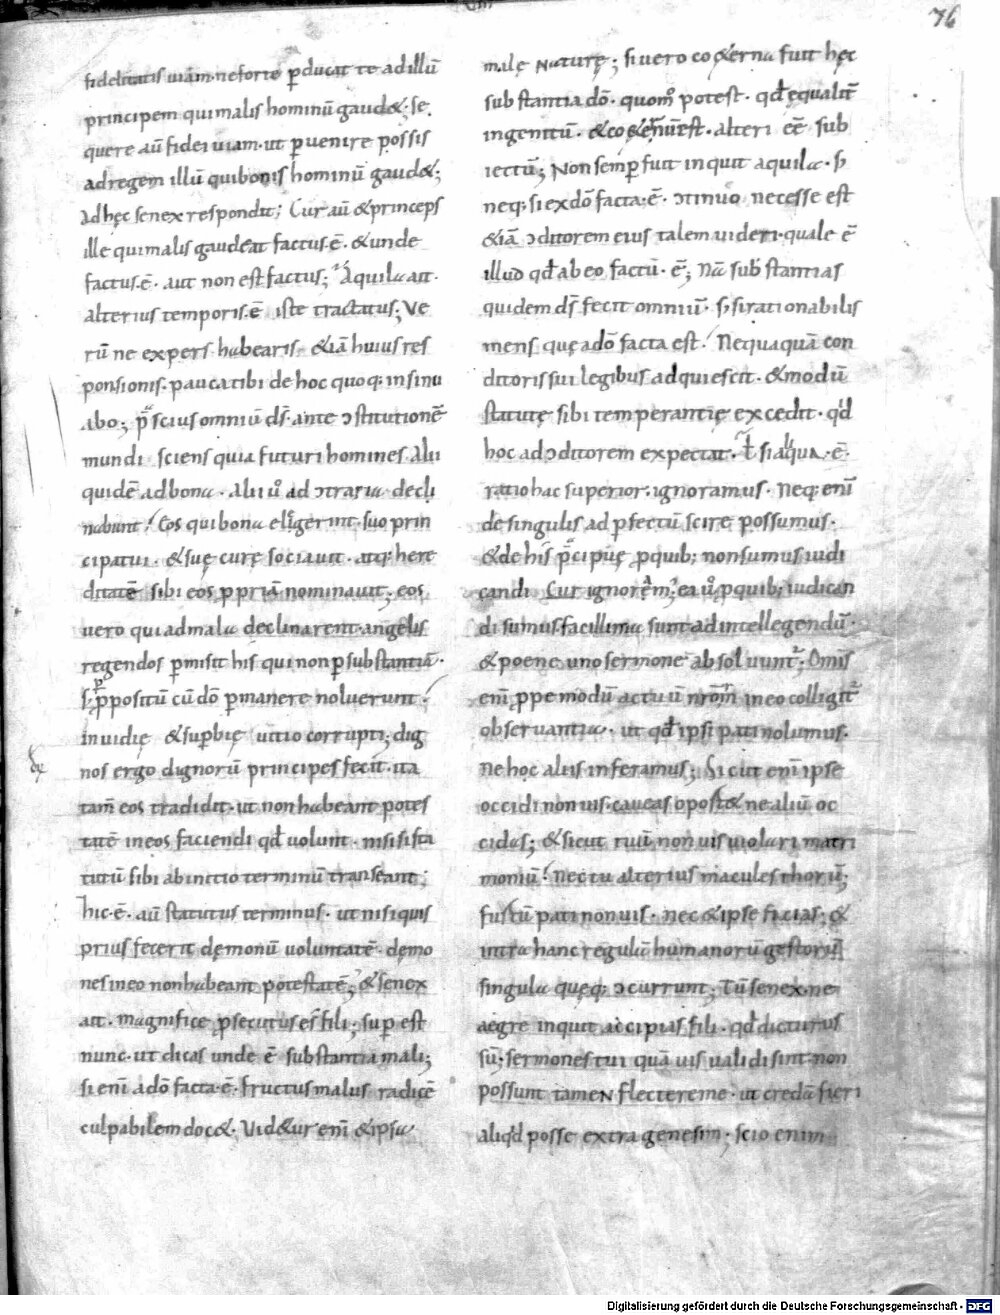 76
fidelitatis uiam· ne forte p̄ducat te ad illū
principem qui malis hominū gaud&; se
quere aū fidei uiam· ut p̄uenire possis
ad regem illū qui bonis hominū gaud&;
Ad hęc senex respondit; Cur aū & princeps
ille qui malis gaudeat factus·ē· & unde
factus·ē· aut non est factus; Aquila ait·
alterius temporis·ē iste tractatus; Ve
rū ne expers habearis· &iā huius res
ponsionis· pauca tibi de hoc quoq; insinu
abo; p̄scius omniū ds̄· ante ↄstitutionē
mundi sciens quia futuri homines alii
quidē ad bona· alii u͛o ad ↄtraria decli
nabunt! Eos qui bona eligerint· suo prin
cipatui· & suę curę sociauit· atq; here
ditatē sibi eos ꝓpriā nominauit; eos
uero qui ad mala declinarent· angelis
regendos p̄misit his qui non p̄ substantiā·
s; ꝓpositū cū dō p̄manere noluerunt!
inuidię & sup̄bię uitio corrupti; dig
nos ergo dignorū principes fecit· ita
tam̄ eos tradidit· ut non habeant potes
tatē in eos faciendi qd̄ uolunt· nisi sta
tutū sibi ab initio terminū transeant;
hic·ē· aū statutus terminus· ut nisi quis
prius fecerit dęmonū uoluntatē· dęmo
nes in eo non habeant potestatē; & senex
ait· magnifice ꝓsecutus es fili; sup̄ est
nunc· ut dicas unde ē substantia mali;
si enī a dō facta·ē· fructus malus radicē
culpabilem doc&· Vid&ur enī & ipsa
malę naturę; si uero co&erna fuit hęc
substantia dō· quom͛o potest· qd̄ ęqualit̄
ingenitū· & co&ernū est· alteri eē sub
iectū; Non semp̄ fuit inquit aquila· s;
neq; si ex dō facta·ē· ↄtinuo necesse est
&iā ↄditorem eius talem uideri· quale ē
illud qd̄ ab eo factū· ē; Nā substantias
quidem ds̄ fecit omniū· s; si rationabilis
mens quę a dō facta est! Nequaquā con
ditoris sui legibus adquiescit· & modū
statutę sibi temperantię excedit· qd̄
hoc ad ↄditorem expectat· ł si aliqua·ē·
ratio hac superior· ignoramus· Neq; enī
de singulis ad p̄fectū scire possumus·
& de his p̄cipuę ꝓ quib; non sumus iudi
candi Cur ignorem̄; ea u͛o ꝓ quib; iudican
di sumus· facillima sunt ad intellegendū·
& poene uno sermone absoluunt͛; Om̄is
enī ꝓpe modū actuū nr̄om̄ in eo colligit͛
obseruantia· ut qd̄ ipsi pati nolumus·
ne hoc aliis inferamus; Sicut enī ipse
occidi non uis· caueas oport& ne aliū oc
cidas; & sicut tuū non uis uiolari matri
moniū! nec tu alterius macules thorū;
furtū pati non uis· nec & ipse facias; &
intra hanc regulā humanorū gestorū
singula quęq; ↄcurrunt; Tū senex· ne
aegre inquit accipias fili· qd̄ dicturus
sū; sermones tui quā uis ualidi sint· non
possunt tamen flectere me· ut credā fieri
aliqd̄ posse extra genesim; scio enim
Digitalisierung gefördert durch die Deutsche Forschungsgemeinschaft - DFG